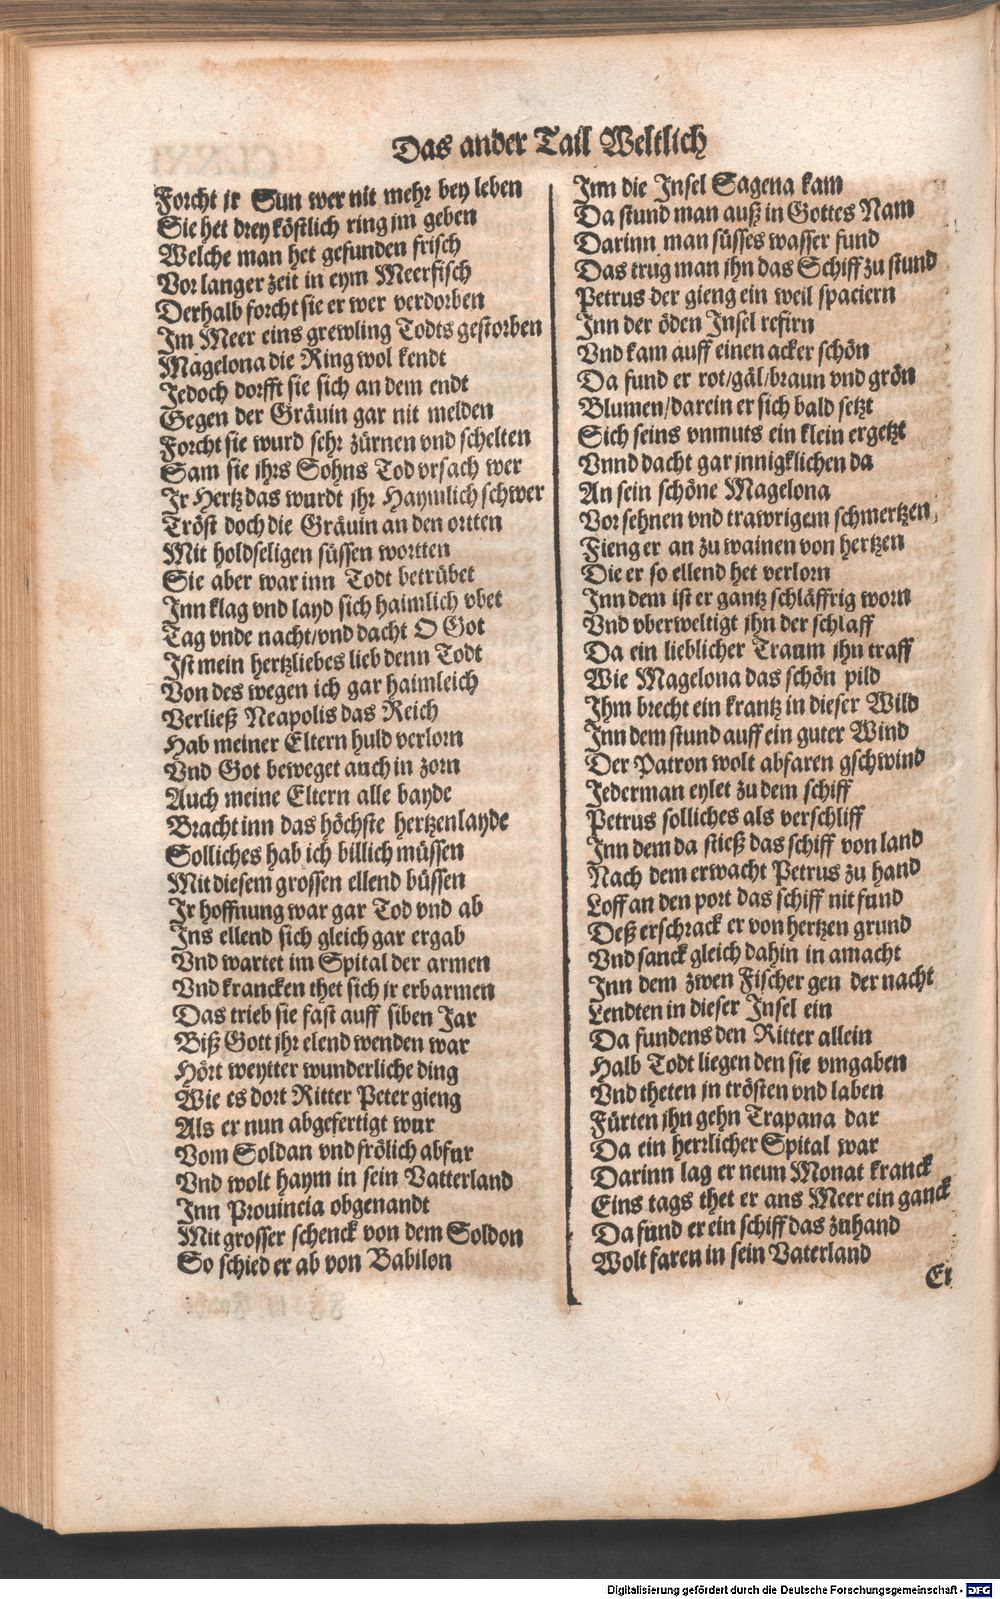 Das ander Tail Weltlich
Forcht jr Sun wer nit mehr bey leben
Sie het drey köstlich ring jm geben
Welche man het gefunden frisch
Vor langer zeit in eym Meerfisch
Derhalb forcht sie er wer verdorben
Im Meer eins grewling Todts gestorben
Magelona die Ring wol kendt
Jedoch dorfft sie sich an dem endt
Gegen der Gräuin gar nit melden
Forcht sie wurd sehr zürnen vnd schelten
Sam sie ihrs Sohns Tod vrsach wer
Jr Hertz das wurdt jhr Haymlich schwer
Tröst doch die Gräuin an den ortten
Mit holdseligen süssen wortten
Sie aber war inn Todt betrübet
Inn klag vnd layd sich haimlich vbet
Tag vnde nacht/vnd dacht O Got
Ist mein hertzliebes lieb denn Todt
Von des wegen ich gar haimleich
Verließ Neapolis das Reich
Hab meiner Eltern huld verlorn
Vnd Got beweget auch in zorn
Auch meine Eltern alle bayde
Bracht inn das höchste hertzenlayde
Solliches hab ich billich müssen
Mit diesem grossen ellend büssen
Jr hoffnung war gar Tod vnd ab
Ins ellend sich gleich gar ergab
Vnd wartet im Spital der armen
Vnd krancken thet sich jr erbarmen
Das trieb sie fast auff siben Jar
Biß Gott jhr elend wenden war
Hört weytter wunderliche ding
Wie es dort Ritter Peter gieng
Als er nun abgefertigt wur
Vom Soldan vnd frölich abfur
Vnd wolt haym in sein Vatterland
Inn Prouincia obgenandt
Mit grosser schenck von dem Soldon
So schied er ab von Babilon
Inn die Insel Sagena kam
Da stund man auß in Gottes Nam
Darinn man süsses wasser fund
Das trug man jhn das Schiff zu stund
Petrus der gieng ein weil spaciern
Inn der öden Insel refirn
Vnd kam auff einen acker schön
Da fund er rot/gäl/braun vnd grön
Blumen/darein er sich bald setzt
Sich seins vnmuts ein klein ergetzt
Vnnd dacht gar jnnigklichen da
An sein schöne Magelona
Vor sehnen vnd trawrigem schmertzen,
Fieng er an zu wainen von hertzen
Die er so ellend het verlorn
Inn dem ist er gantz schläffrig worn
Vnd vberweltigt jhn der schlaff
Da ein lieblicher Traum jhn traff
Wie Magelona das schön pild
Ihm brecht ein krantz in dieser Wild
Inn dem stund auff ein guter Wind
Der Patron wolt abfaren gschwind
Jederman eylet zu dem schiff
Petrus solliches als verschliff
Inn dem da stieß das schiff von land
Nach dem erwacht Petrus zu hand
Loff an den port das schiff nit fund
Deß erschrack er von hertzen grund
Vnd sanck gleich dahin in amacht
Inn dem zwen Fischer gen der nacht
Lendten in dieser Insel ein
Da fundens den Ritter allein
Halb Todt liegen den sie vmgaben
Vnd theten jn trösten vnd laben
Fürten jhn gehn Trapana dar
Da ein herrlicher Spital war
Darinn lag er neun Monat kranck
Eins tags thet er ans Meer ein ganck
Da fund er ein schiff das zuhand
Wolt faren in sein Vaterland
Er
Digitalisierung gefördert durch die Deutsche Forschungsgemeinschaft - DFG